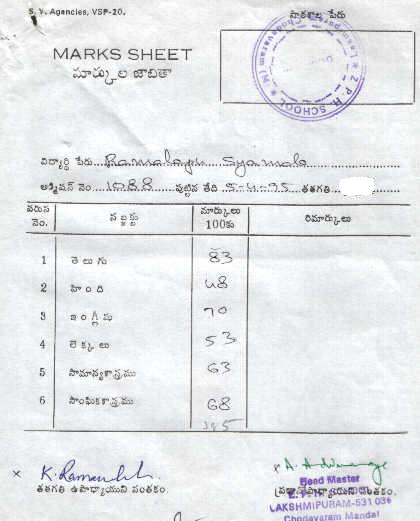 S. V. Agencies, VSP-20.
పాఠశాల పేరు
MARKS SHEET
మార్కుల జాబితా
Z. P. H. SCHOOL
విద్యార్థి పేరు Ramalayam Syamala
అడ్మిషన్ నెం. 1088 పుట్టిన తేది 5-4-75 తరగతి
వరుస నెం. సబ్జక్టు మార్కులు 100కు రిమార్కులు
1 తెలుగు 83
2 హింది 48
3 ఇంగ్లీషు 70
4 లెక్కలు 53
5 సామాన్యశాస్త్రము 63
6 సాంఘికశాస్త్రము 68
385
x K. Ramanukh. x A. A
తరగతి ఉపాధ్యాయుని సంతకం. సంతకం.
Head Master
LAKSHMIPURAM-531 036
Chodavaram Mandal